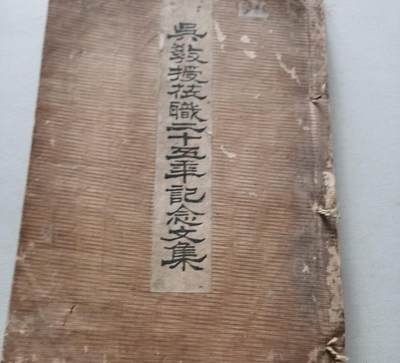 吳敎授在職二十五年記念文集